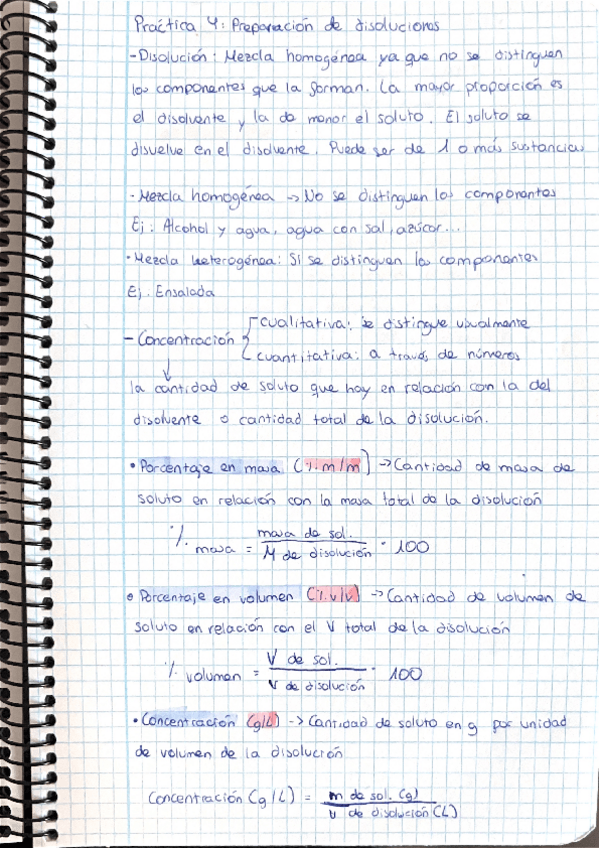 Práctica 4: Preparación de disoluciones
- Disolución: Mezcla homogénea ya que no se distinguen
los componentes que la forman. La mayor proporción es
el disolvente y la de menor el soluto. El soluto se
disuelve en el disolvente. Puede ser de 1 o más sustancias
· Mezcla homogénea → No se distinguen los componentes
Ej: Alcohol y agua, agua con sal, azúcar...
· Mezcla heterogénea: Si se distinguen los componentes
Ej. Ensalada
- Concentración
cualitativa: se distingue visualmente
cuantitativa: a través de números
la cantidad de soluto que hay en relación con la del
disolvente o cantidad total de la disolución.
• Porcentaje en masa (% m/m) → Cantidad de masa de
soluto en relación con la masa total de la disolución
% masa = masa de sol. / M de disolución · 100
• Porcentaje en volumen (% v/v) → Cantidad de volumen de
soluto en relación con el V total de la disolución
% volumen = V de sol. / V de disolución · 100
• Concentración (g/L) → Cantidad de soluto en g por unidad
de volumen de la disolución
Concentración (g/L) = m de sol. (g) / v de disolución (L)